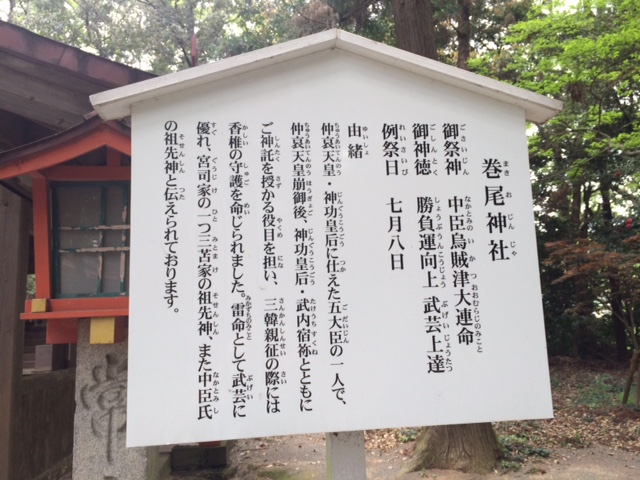 巻尾神社
御祭神 中臣烏賊津大連命
御神徳 勝負運向上 武芸上達
例祭日 七月八日
由緒
仲哀天皇・神功皇后に仕えた五大臣の一人で、
仲哀天皇崩御後、神功皇后・武内宿祢とともに
ご神託を授かる役目を担い、三韓親征の際には
香椎の守護を命じられました。雷命として武芸に
優れ、宮司家の一つ三苫家の祖先神、また中臣氏
の祖先神と伝えられております。
常